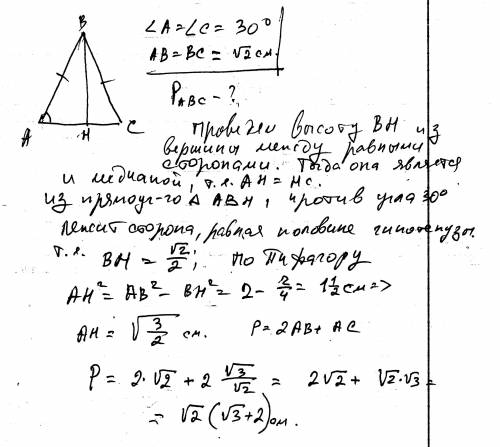 B
A H C
∠A = ∠C = 30°
AB = BC = √2 см.
P_ABC - ?
Проведём высоту BH из
вершины между равными
сторонами. Тогда она является
и медианой, т.е. AH = HC.
из прямоуг-го Δ ABH, против угла 30°
лежит сторона, равная половине гипотенузы.
т.е. BH = √2/2; по Пифагору
AH² = AB² - BH² = 2 - 2/4 = 1 1/2 см =>
AH = √(3/2) см. P = 2AB + AC
P = 2·√2 + 2 √3/√2 = 2√2 + √2·√3 =
= √2 (√3 + 2) см.